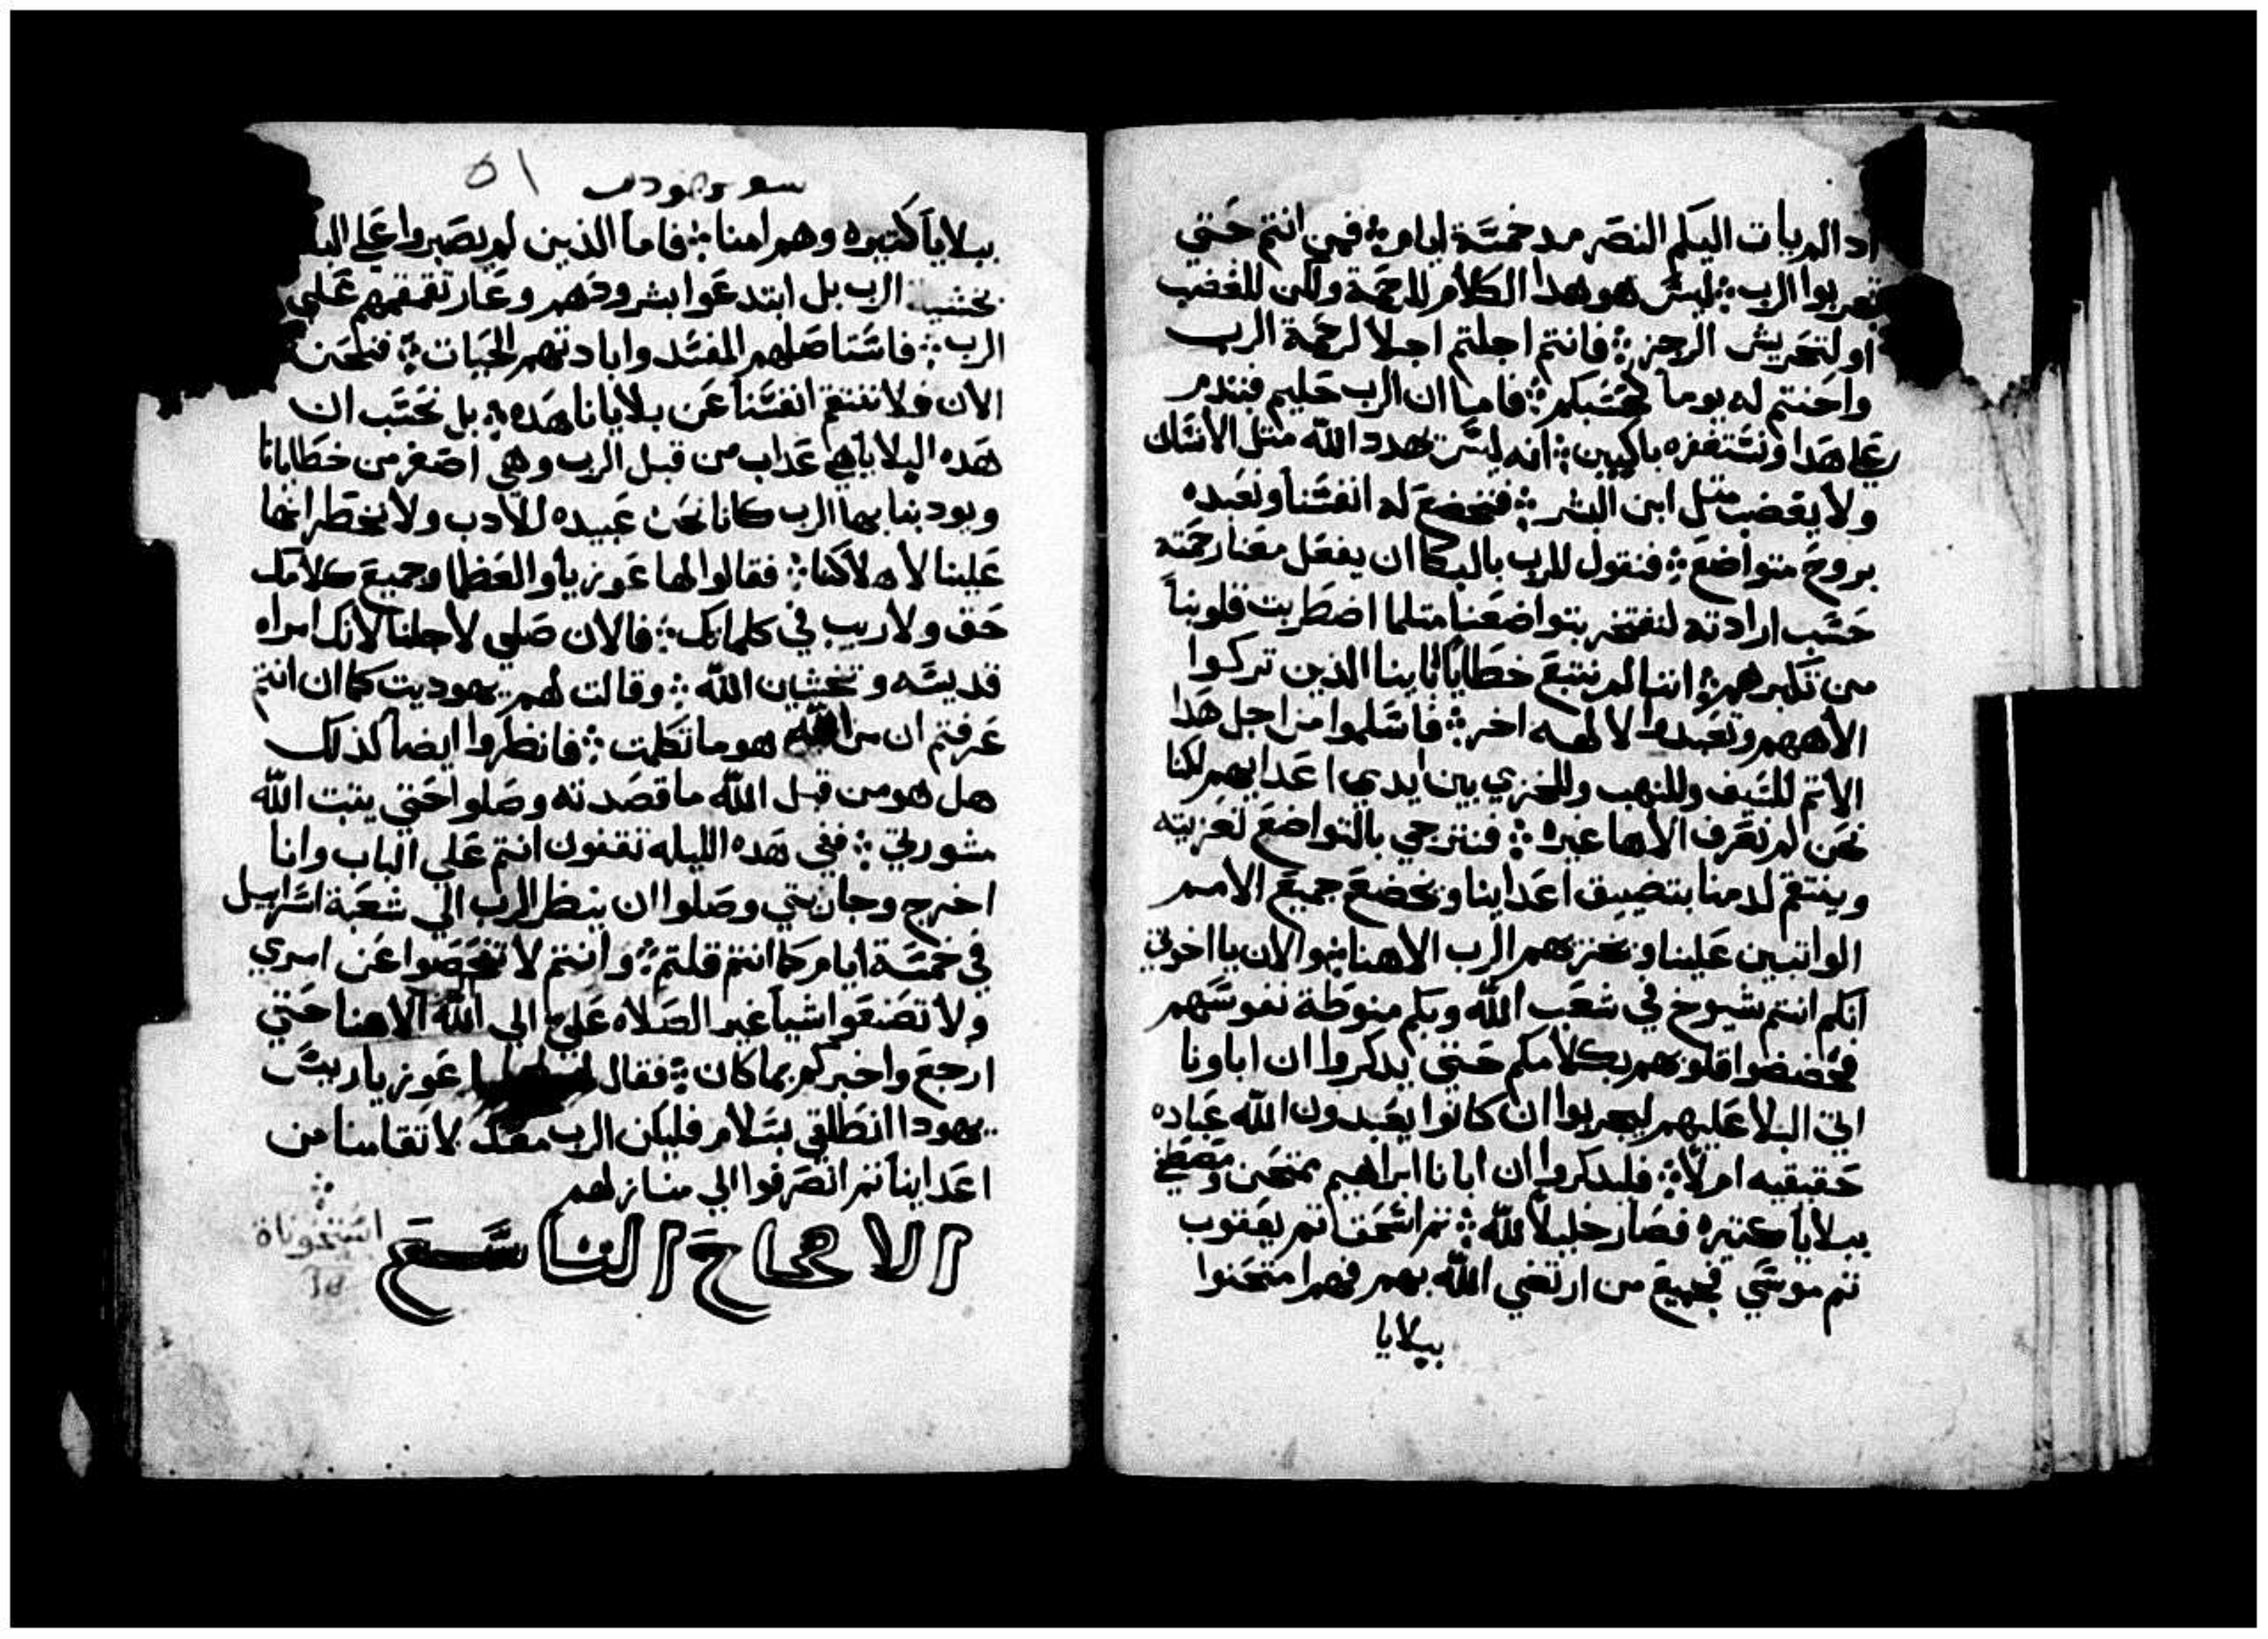 اد الم يات اليكم النصر مد خمسة ايام؛ فمن انتم حتي
تجربوا الرب؛ ليس هو هدا الكلام للرحمة ولكن للغضب
او لتحريش الرجز؛ فانتم اجلتم اجلا لرحمة الرب
واحنتم له يوما كحسبكم؛ فاما ان الرب حليم فنندم
علي هدا ونستغفره باكيين؛ انه ليس يهدد الله متل الانسان
ولا يغضب متل ابن البشر؛ فنخضع له انفسنا ونعبده
بروح متواضع؛ فنقول للرب بالبكا ان يفعل معنا رحمته
حسب ارادته لنفتخر بتواضعنا متلما اضطربت قلوبنا
من تكبرهم؛ اننا لم نتبع خطايا ابابنا الدين تركوا
الاههم وتعبدوا لالهه اخر؛ فاسلموا من اجل هدا
الاتم للسيف وللنهب وللخزي بين ايدي اعدابهم لكنا
نحن لم نعرف الاها غيره؛ فنترجي بالتواضع تعزيته
وينتقم لدمنا بتضييق اعداينا ويخضع جميع الامم
الواتبين علينا ويخزيهم الرب الاهنا؛ والان يا اخوتي
انكم انتم شيوخ في شعب الله وبكم منوطة نفوسهم
فخضضوا قلوبهم بكلامكم حتي يدكروا ان اباونا
اتي البلا عليهم ليجربوا ان كانوا يعبدون الله عباده
حقيقيه ام لا؛ فليدكروا ان ابانا ابراهيم تمتحن
ببلايا كتيره فصار خليلا لله؛ تم اسحق تم يعقوب
تم موسي فجميع من ارتضي الله بهم فهم امتحنوا
ببلايا
سفر يهوديت ٥١
ببلايا كتيره وهم امنا؛ فاما الذين لم يصبروا علي البلا
بخشية الرب بل ابتدعوا بشرودهم وعار تقمقمهم علي
الرب؛ فاستاصلهم المفسد وابادتهم الحيات؛ فنحن
الان فلا ننتقم انفسنا عن بلايانا هده؛ بل نحسب ان
هده البلايا هي عداب من قبل الرب وهي اصغر من خطايانا
ويودبنا بها الرب كاننا نحن عبيده للادب ولا نخطر انها
علينا لاهلاكنا؛ فقالوا لها عوزيا والعظما وجميع كلامك
حق ولا ريب في كلماتك؛ فالان صلي لاجلنا لانك امراه
قديسه وتخشيان الله؛ وقالت لهم يهوديت كما ان انتم
عرفتم ان من الله هو ما تكلمت؛ فانظروا ايضا كذلك
هل هو من قبل الله ما قصدته وصلوا حتي يتبت الله
مشورتي؛ ففي هده الليله تقفون انتم علي الباب وانا
اخرج وجاريتي وصلوا ان ينظر الرب الي شعبة اسراييل
في خمسة ايام كما انتم قلتم؛ وانتم لا تفحصوا عن امري
ولا تصنعوا شيا غير الصلاه علي الي الله الاهنا حتي
ارجع واخبركم بما كان؛ فقال لها عوزيا ريس
يهودا انطلقي بسلام فليكن الرب معك لانتقامنا من
اعداينا تم انصرفوا الي منازلهم
الاصحاح التاسع